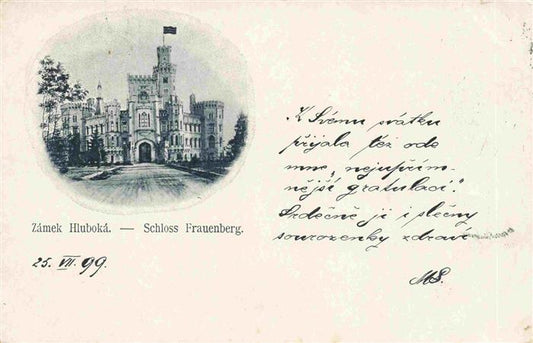 Zámek Hluboká. — Schloss Frauenberg.
25. VII. 99.
K Svému svátku
přijala též ode
mne „nejupřím-
nější gratulaci“.
Srdečně ji i slečny
sourozenky zdraví
MS.